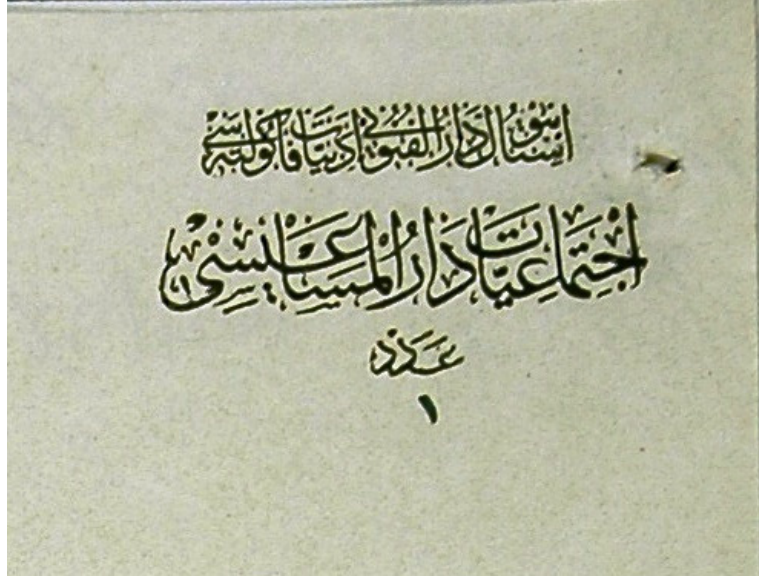 استانبول دار الفنونی ادبیات فاکولته سی
اجتماعیات دار المساعیسی
عدد
١